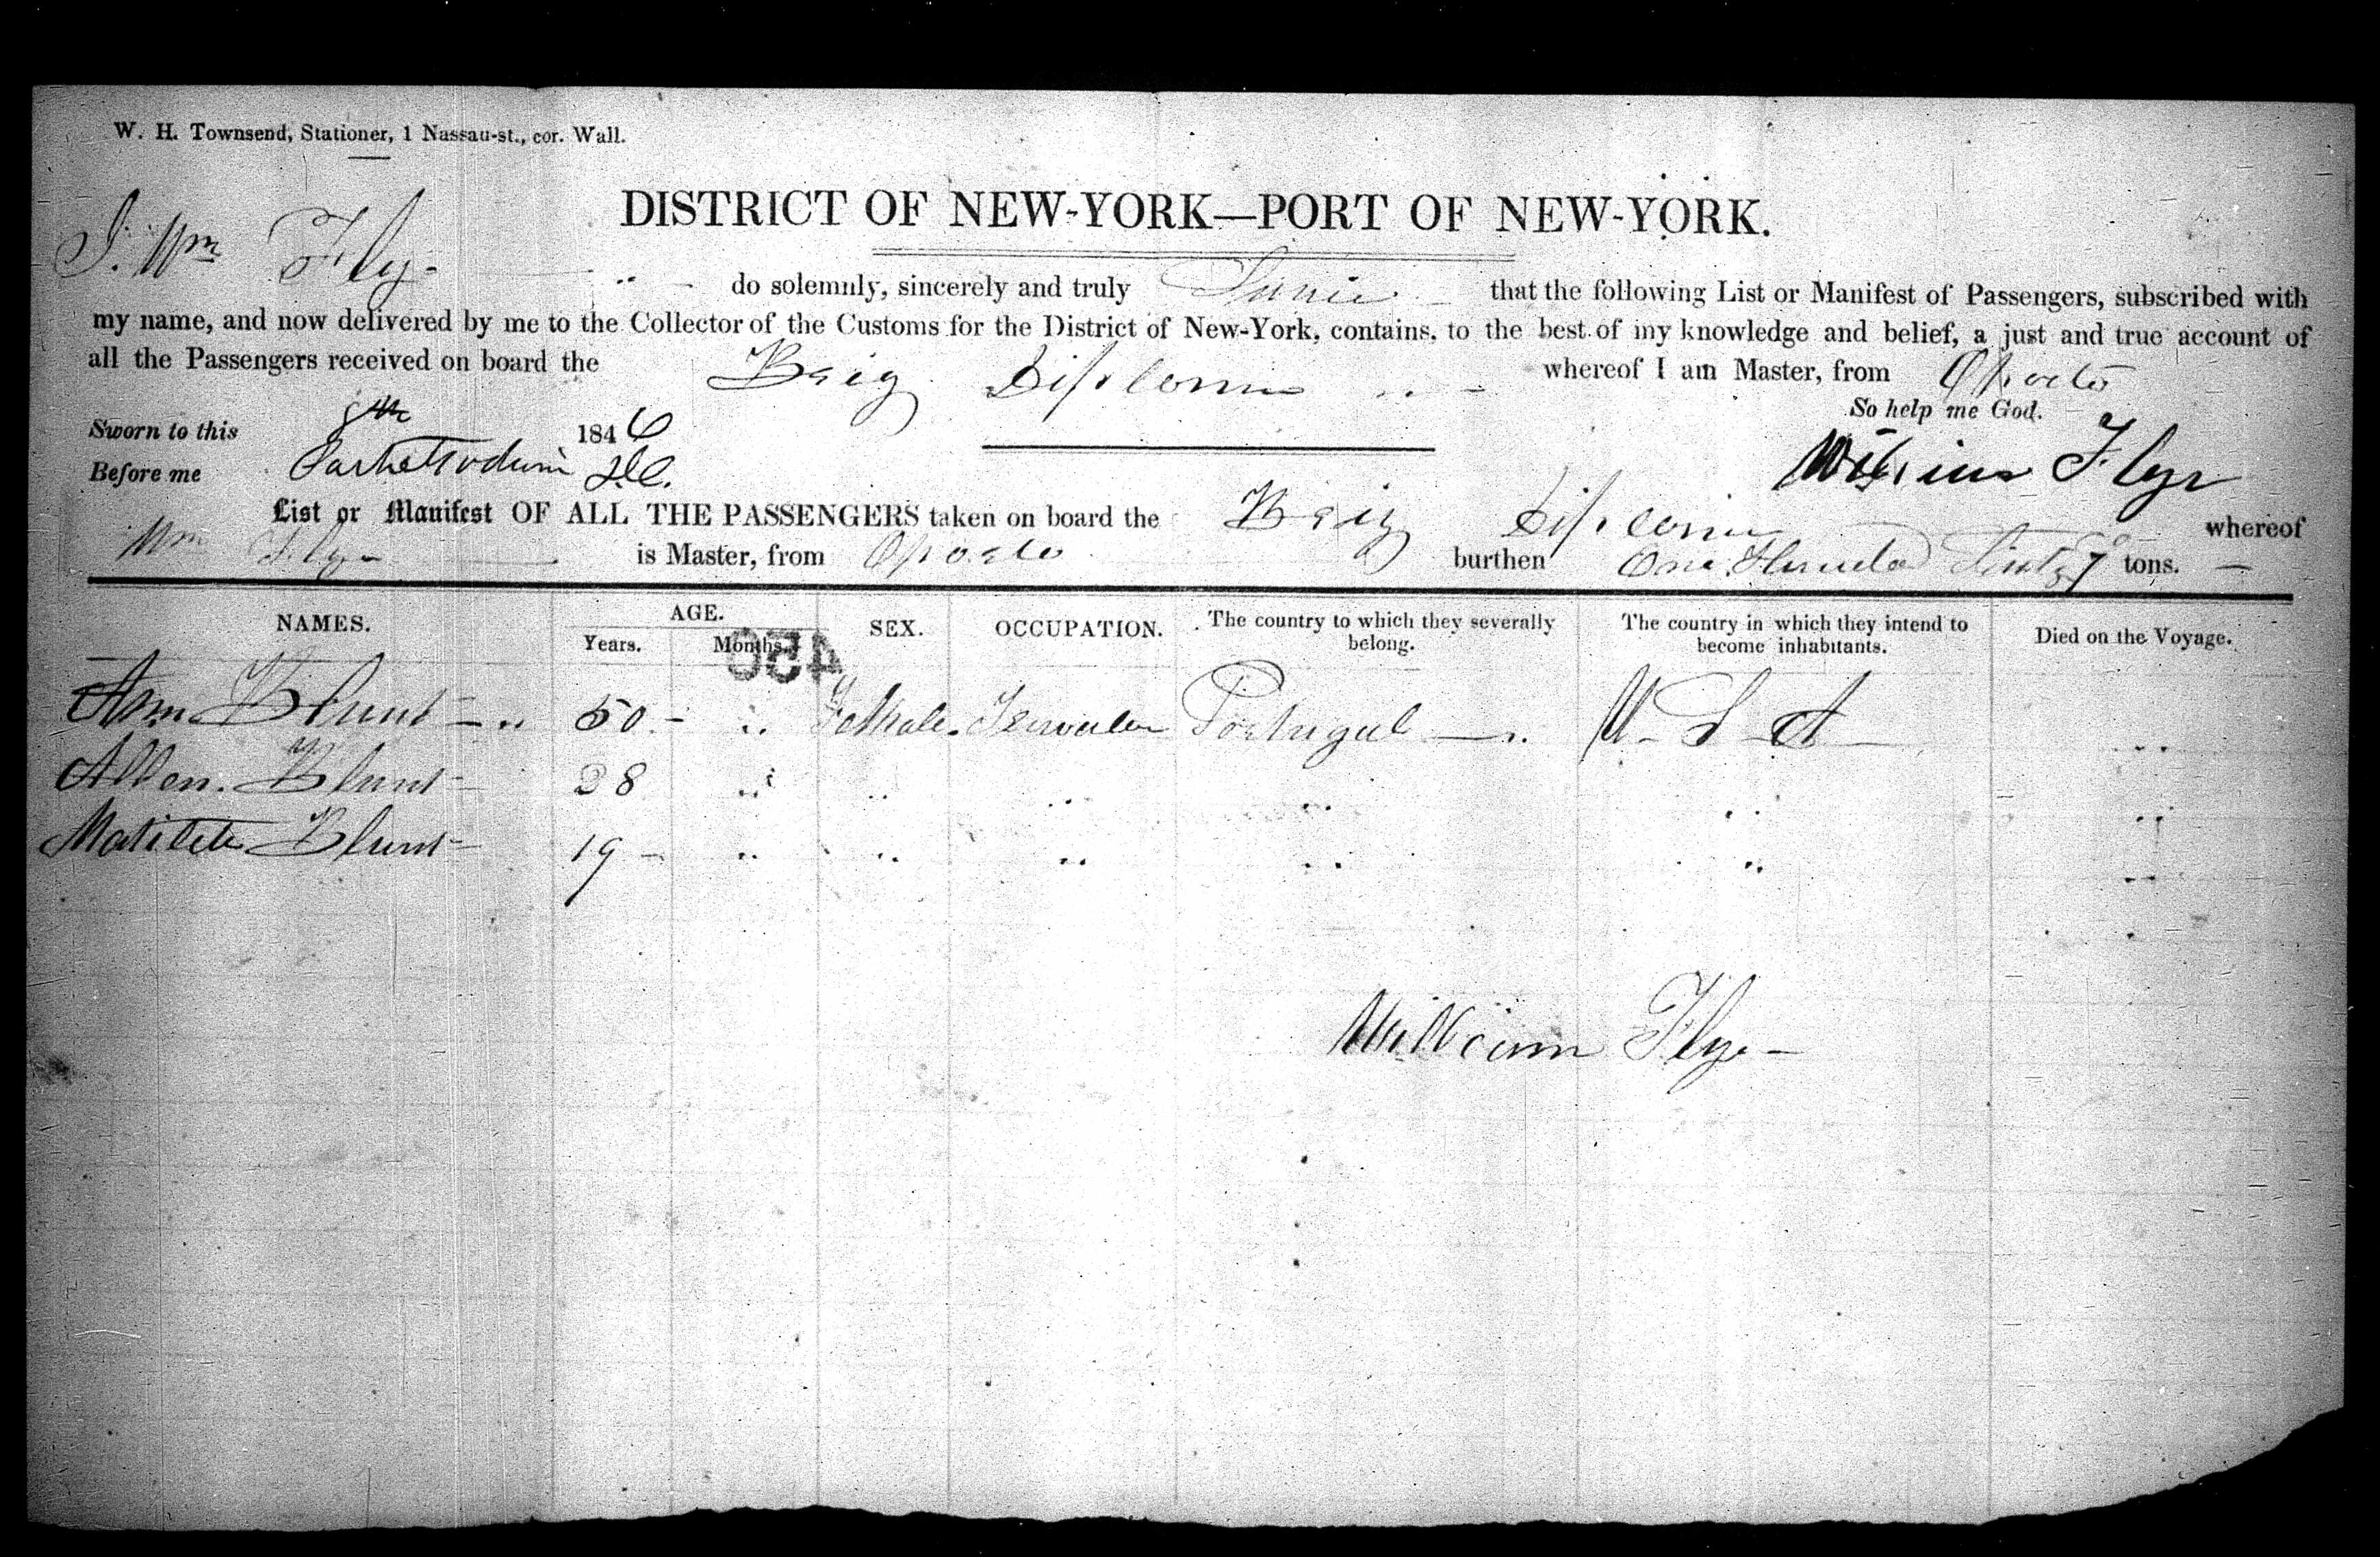 W. H. Townsend, Stationer, 1 Nassau-st., cor. Wall.
DISTRICT OF NEW-YORK—PORT OF NEW-YORK.
I. Wm Flye do solemnly, sincerely and truly that the following List or Manifest of Passengers, subscribed with
my name, and now delivered by me to the Collector of the Customs for the District of New-York, contains, to the best of my knowledge and belief, a just and true account of
all the Passengers received on board the Brig whereof I am Master, from Oporto
So help me God.
Sworn to this 1846
Before me
William Flye
List or Manifest OF ALL THE PASSENGERS taken on board the Brig whereof
Wm Flye is Master, from Oporto burthen One Hundred tons.
NAMES. AGE. Years. Months. SEX. OCCUPATION. The country to which they severally belong. The country in which they intend to become inhabitants. Died on the Voyage.
Ann Blunt 50 " Female Portugal U S A "
Blunt 28 " " " " " "
Blunt 19 " " " " " "
William Flye